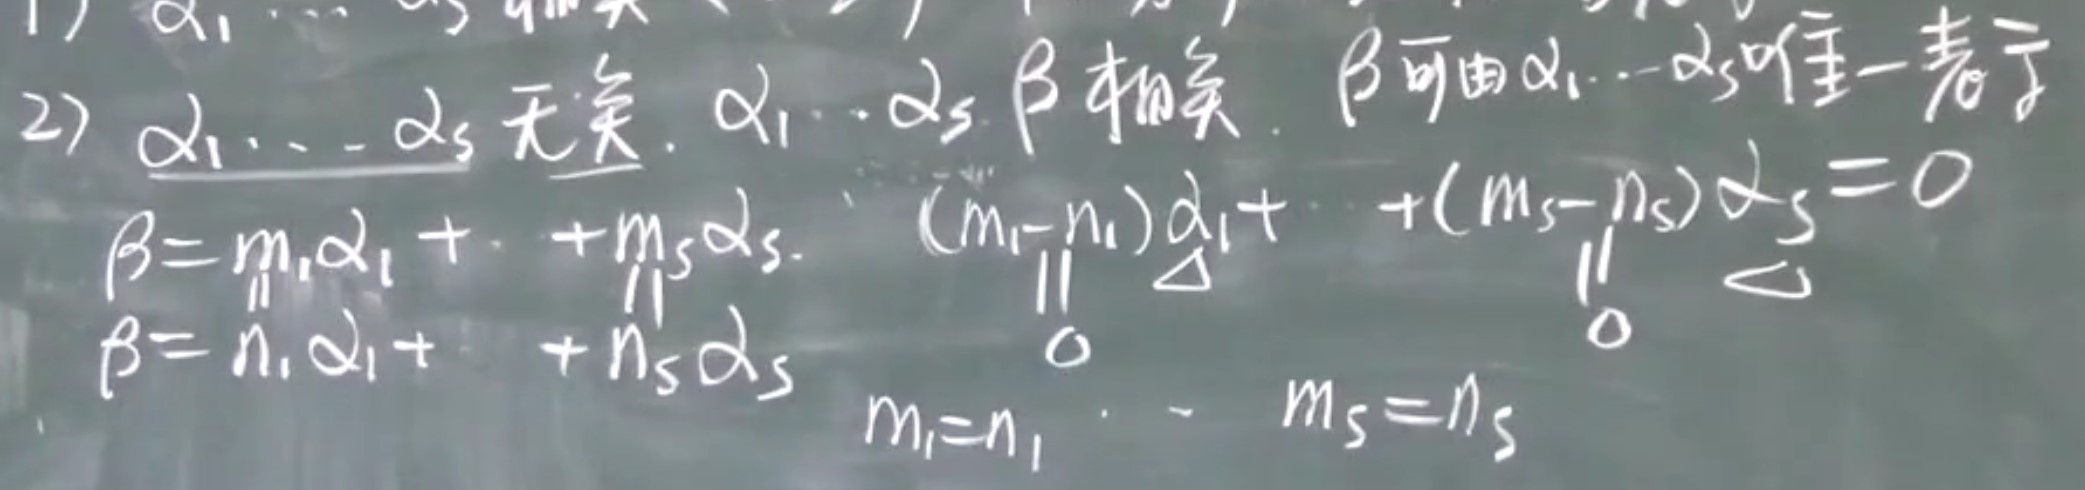 1) α₁ ··· αs
2) α₁ ··· αs 无关. α₁ ··· αs β 相关. β可由α₁ ··· αs唯一表示
β = m₁α₁ + ·· + msαs. (m₁-n₁)α₁ + ·· + (ms-ns)αs = 0
|| || || △ || △
β = n₁α₁ + ·· + nsαs 0 0
m₁ = n₁ ··· ms = ns